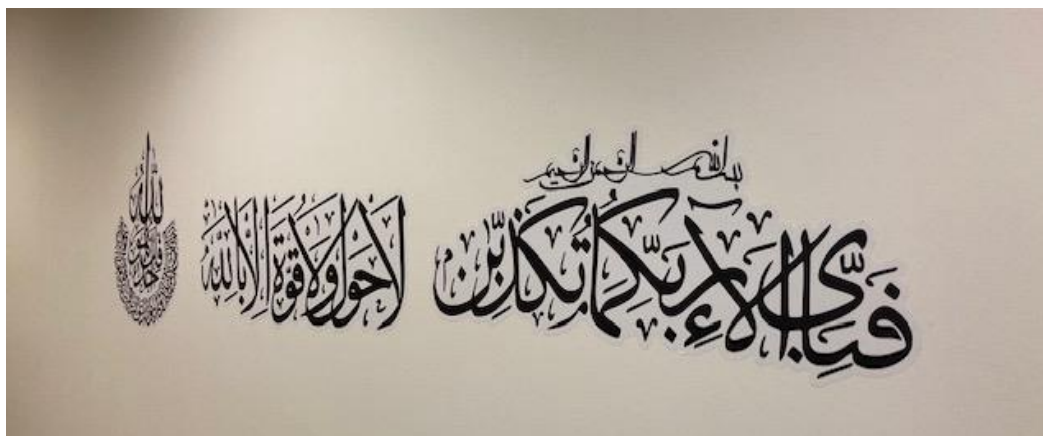 بسم الله الرحمن الرحيم
فَبِأَيِّ آلَاءِ رَبِّكُمَا تُكَذِّبَانِ
لَا حَوْلَ وَلَا قُوَّةَ إِلَّا بِاللَّهِ